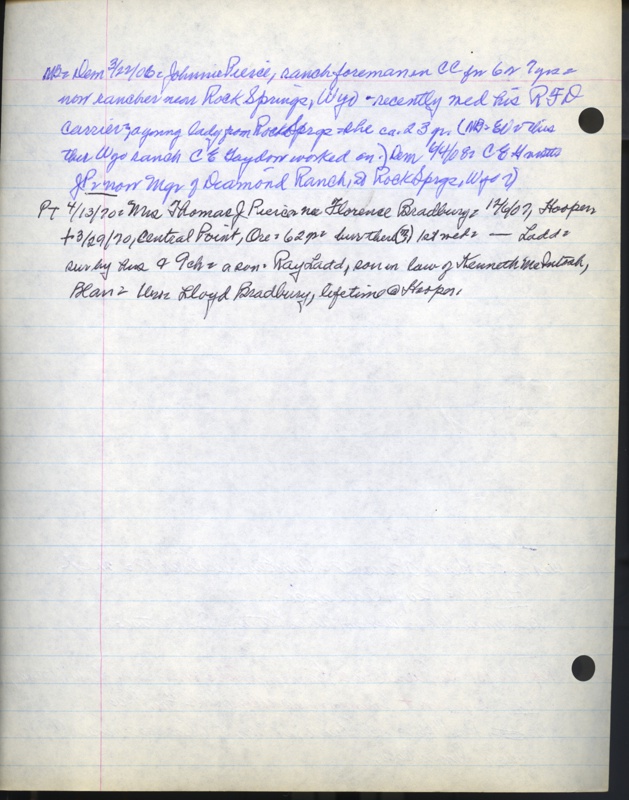 NB= Dem 3/22/06= Johnnie Pierce, ranch foreman in CC for 6 or 7 yrs =
now rancher near Rock Springs, Wyo - recently wed his RFD
carrier = a young lady from Rock Sprgs = she ca. 23 yr. (NB=
this Wyo ranch C E Gaydon worked on.) Dem 4/4/08= C E
JP = now Mgr of Diamond Ranch, at Rock Sprgs, Wyo ?)
PT 4/13/70= Mrs Thomas J Pierce nee Florence Bradbury= 12/6/07, Hooper
+ 3/29/70, Central Point, Ore = 62 yr = bur there (?) 1st wed = — Ladd =
sur by hus & 9 ch = a son = Ray Ladd, son in law of Kenneth McIntosh,
Blan = bro = Lloyd Bradbury, lifetime @ Hooper.